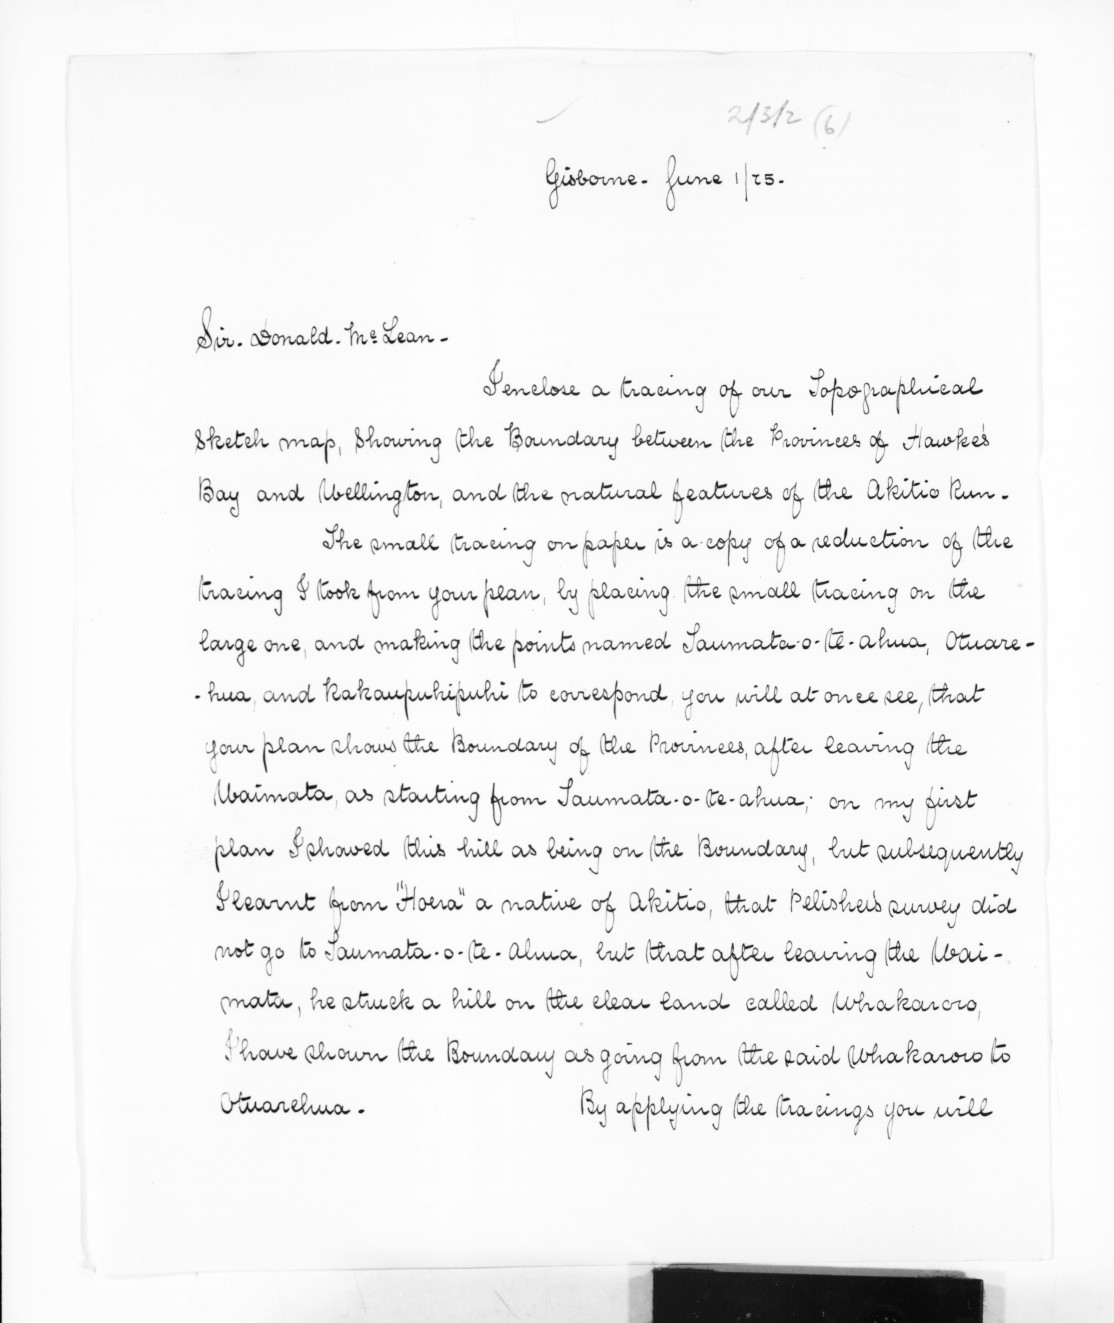 2/3/2 (6)
Gisborne - June 1/75.
Sir. Donald. McLean -
I enclose a tracing of our Topographical
Sketch map, Showing the Boundary between the Provinces of Hawke's
Bay and Wellington, and the natural features of the Akitio Run.
The small tracing on paper is a copy of a reduction of the
tracing I took from your plan, by placing the small tracing on the
large one, and making the points named Taumata-o-te-ahua, Otuare-
-hua, and Kakaupuhipuhi to correspond, you will at once see, that
your plan shows the Boundary of the Provinces, after leaving the
Waimata, as starting from Taumata-o-te-ahua; on my first
plan I showed this hill as being on the Boundary, but subsequently
I learnt from "Hoera" a native of Akitio, that Pelisher's survey did
not go to Taumata-o-te-Ahua, but that after leaving the Wai-
mata, he struck a hill on the clear land called Whakaroro,
I have shown the Boundary as going from the said Whakaroro to
Otuarehua. By applying the tracings you will